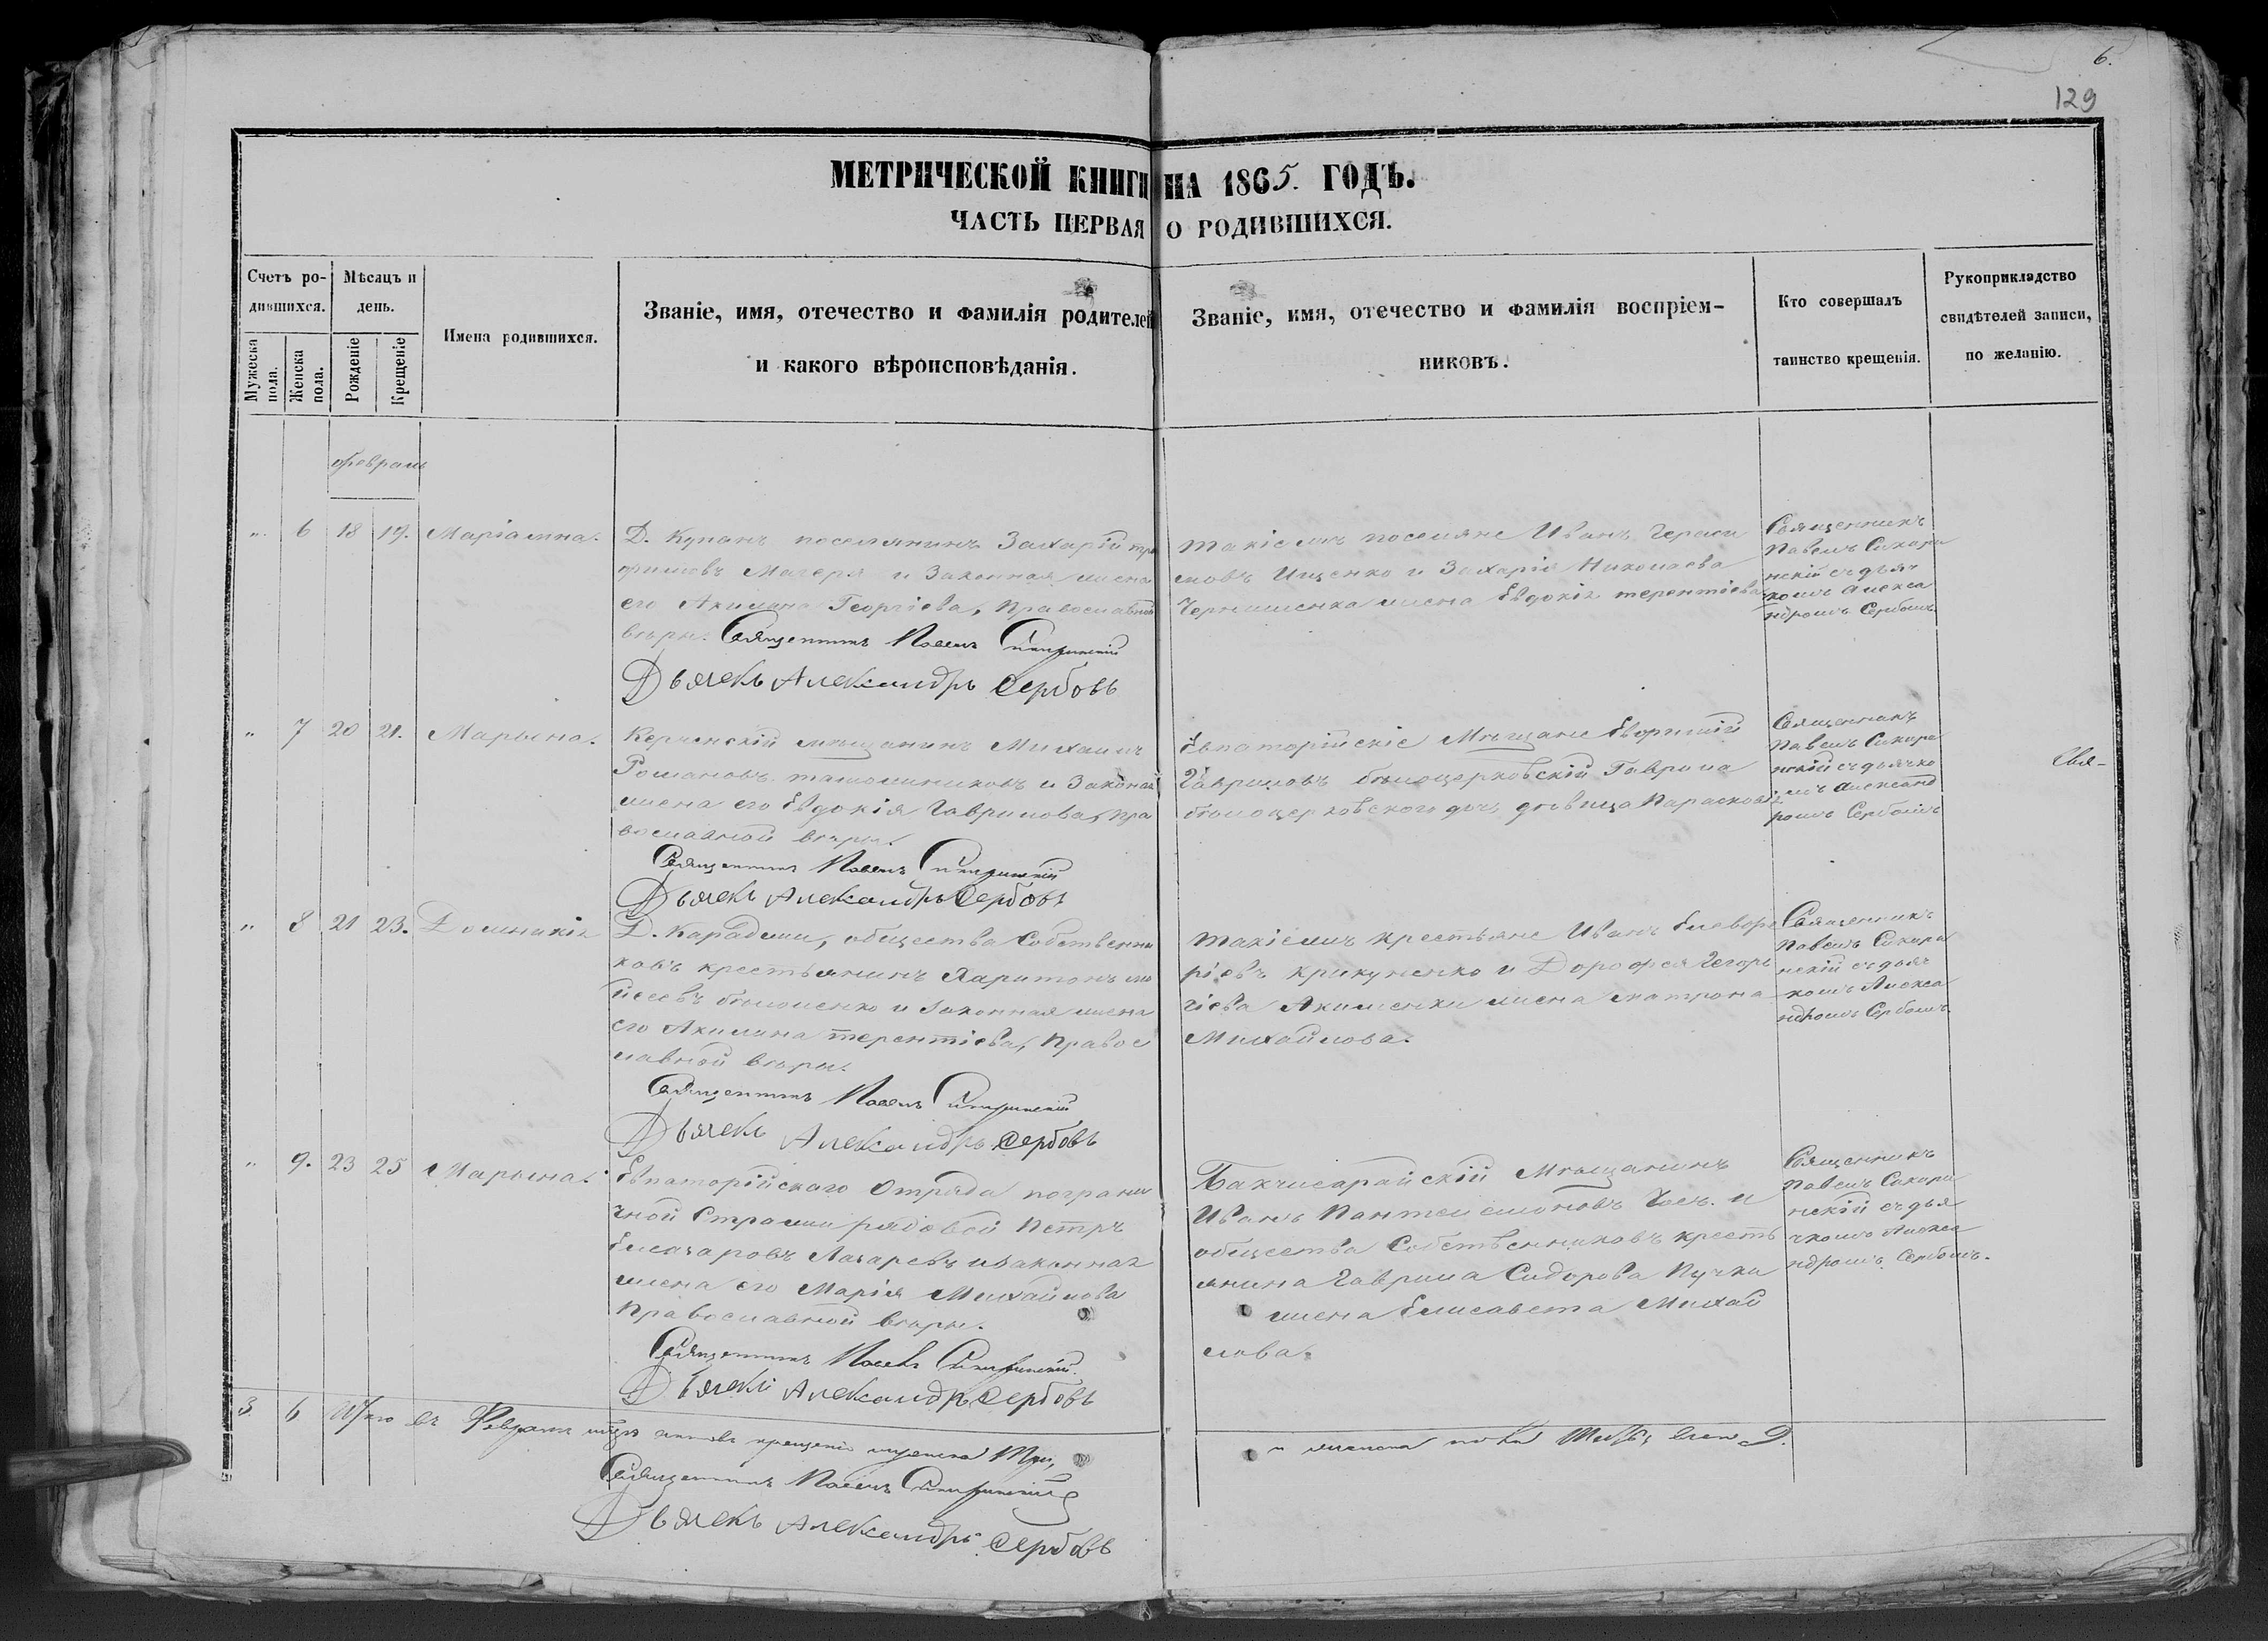 6.
129
МЕТРИЧЕСКОЙ КНИГИ НА 1865. ГОДЪ.
ЧАСТЬ ПЕРВАЯ О РОДИВШИХСЯ.
Счетъ ро-
дившихся.
Мужеска
пола.
Женска
пола.
Мѣсяцъ и
день.
Рожденіе
Крещеніе
Имена родившихся.
Званіе, имя, отечество и фамилія родителей
и какого вѣроисповѣданія.
Званіе, имя, отечество и фамилія воспріем-
никовъ.
Кто совершалъ
таинство крещенія.
Рукоприкладство
свидѣтелей записи,
по желанію.
февраль
" 6 18 19. Маріамна.
Д. Купанъ поселянинъ Захарій тро
фимовъ Мачеря и Законная жена
его Акилина Георгіева, Православной
вѣры. Священникъ Павелъ
Дьячекъ Александръ Сербовъ
такіежъ поселяне Иванъ Гераси
мовъ Ищенко и Захарія Николаева
жена Евдокія терентіева
Священникъ
Павелъ
нскій съ дьяч
комъ Алекса
ндромъ Сербовымъ
" 7 20 21. Марьяна.
Керченскій мѣщанинъ Михаилъ
Романовъ и Законная
жена его Евдокія Гаврилова, пра
вославной вѣры.
Священникъ Павелъ
Дьячекъ Александръ Сербовъ
Евпаторійскіе Мѣщане
Гавриловъ бѣлоцерковскій Гаврила
бѣлоцерковскаго дочь дѣвица Парасковія
Священникъ
Павелъ
нскій съ дьячко
мъ Александ
ромъ Сербовымъ
" 8 21 23. Домникія
Д. Караджи, общества Собственни
ковъ крестьянинъ Харитонъ мо
йсеевъ и Законная жена
его Акилина терентіева, Правос
лавной вѣры.
Священникъ Павелъ
Дьячекъ Александръ Сербовъ
такіежъ крестьяне Иванъ
ріевъ крикуненко и Дорофея Геор
гіева Акименки жена матрона
Михайлова.
Священникъ
Павелъ
нскій съ дьяч
комъ Алекса
ндромъ Сербовымъ
" 9. 23 25 Марьяна.
Евпаторійскаго Отряда пограни
чной Стражи рядовой Петръ
Елеазаровъ Лазаревъ и законная
жена его Марія Михайлова
Православной вѣры.
Священникъ Павелъ
Дьячекъ Александръ Сербовъ
Бахчисарайскій Мѣщанинъ
Иванъ Пантелеймоновъ и
общества Собственниковъ кресть
янина Гаврила Сидорова Пучки
жена Елисавета Михай
лова.
Священникъ
Павелъ
нскій съ дья
чкомъ Алекса
ндромъ Сербовымъ.
3 6 Итого въ Февралѣ мѣсяцѣ актовъ крещенія мужеска Три,
и женска пола Шесть, всего 9.
Священникъ Павелъ
Дьячекъ Александръ Сербовъ